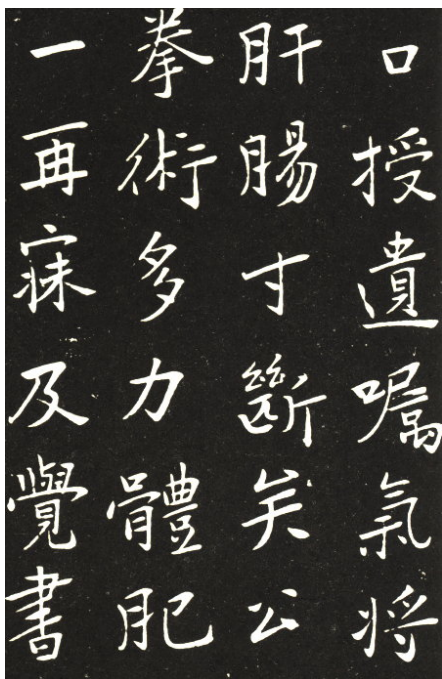 口授遺嘱氣将
肝腸寸斷矣公
拳術多力體肥
一再寐及覺書